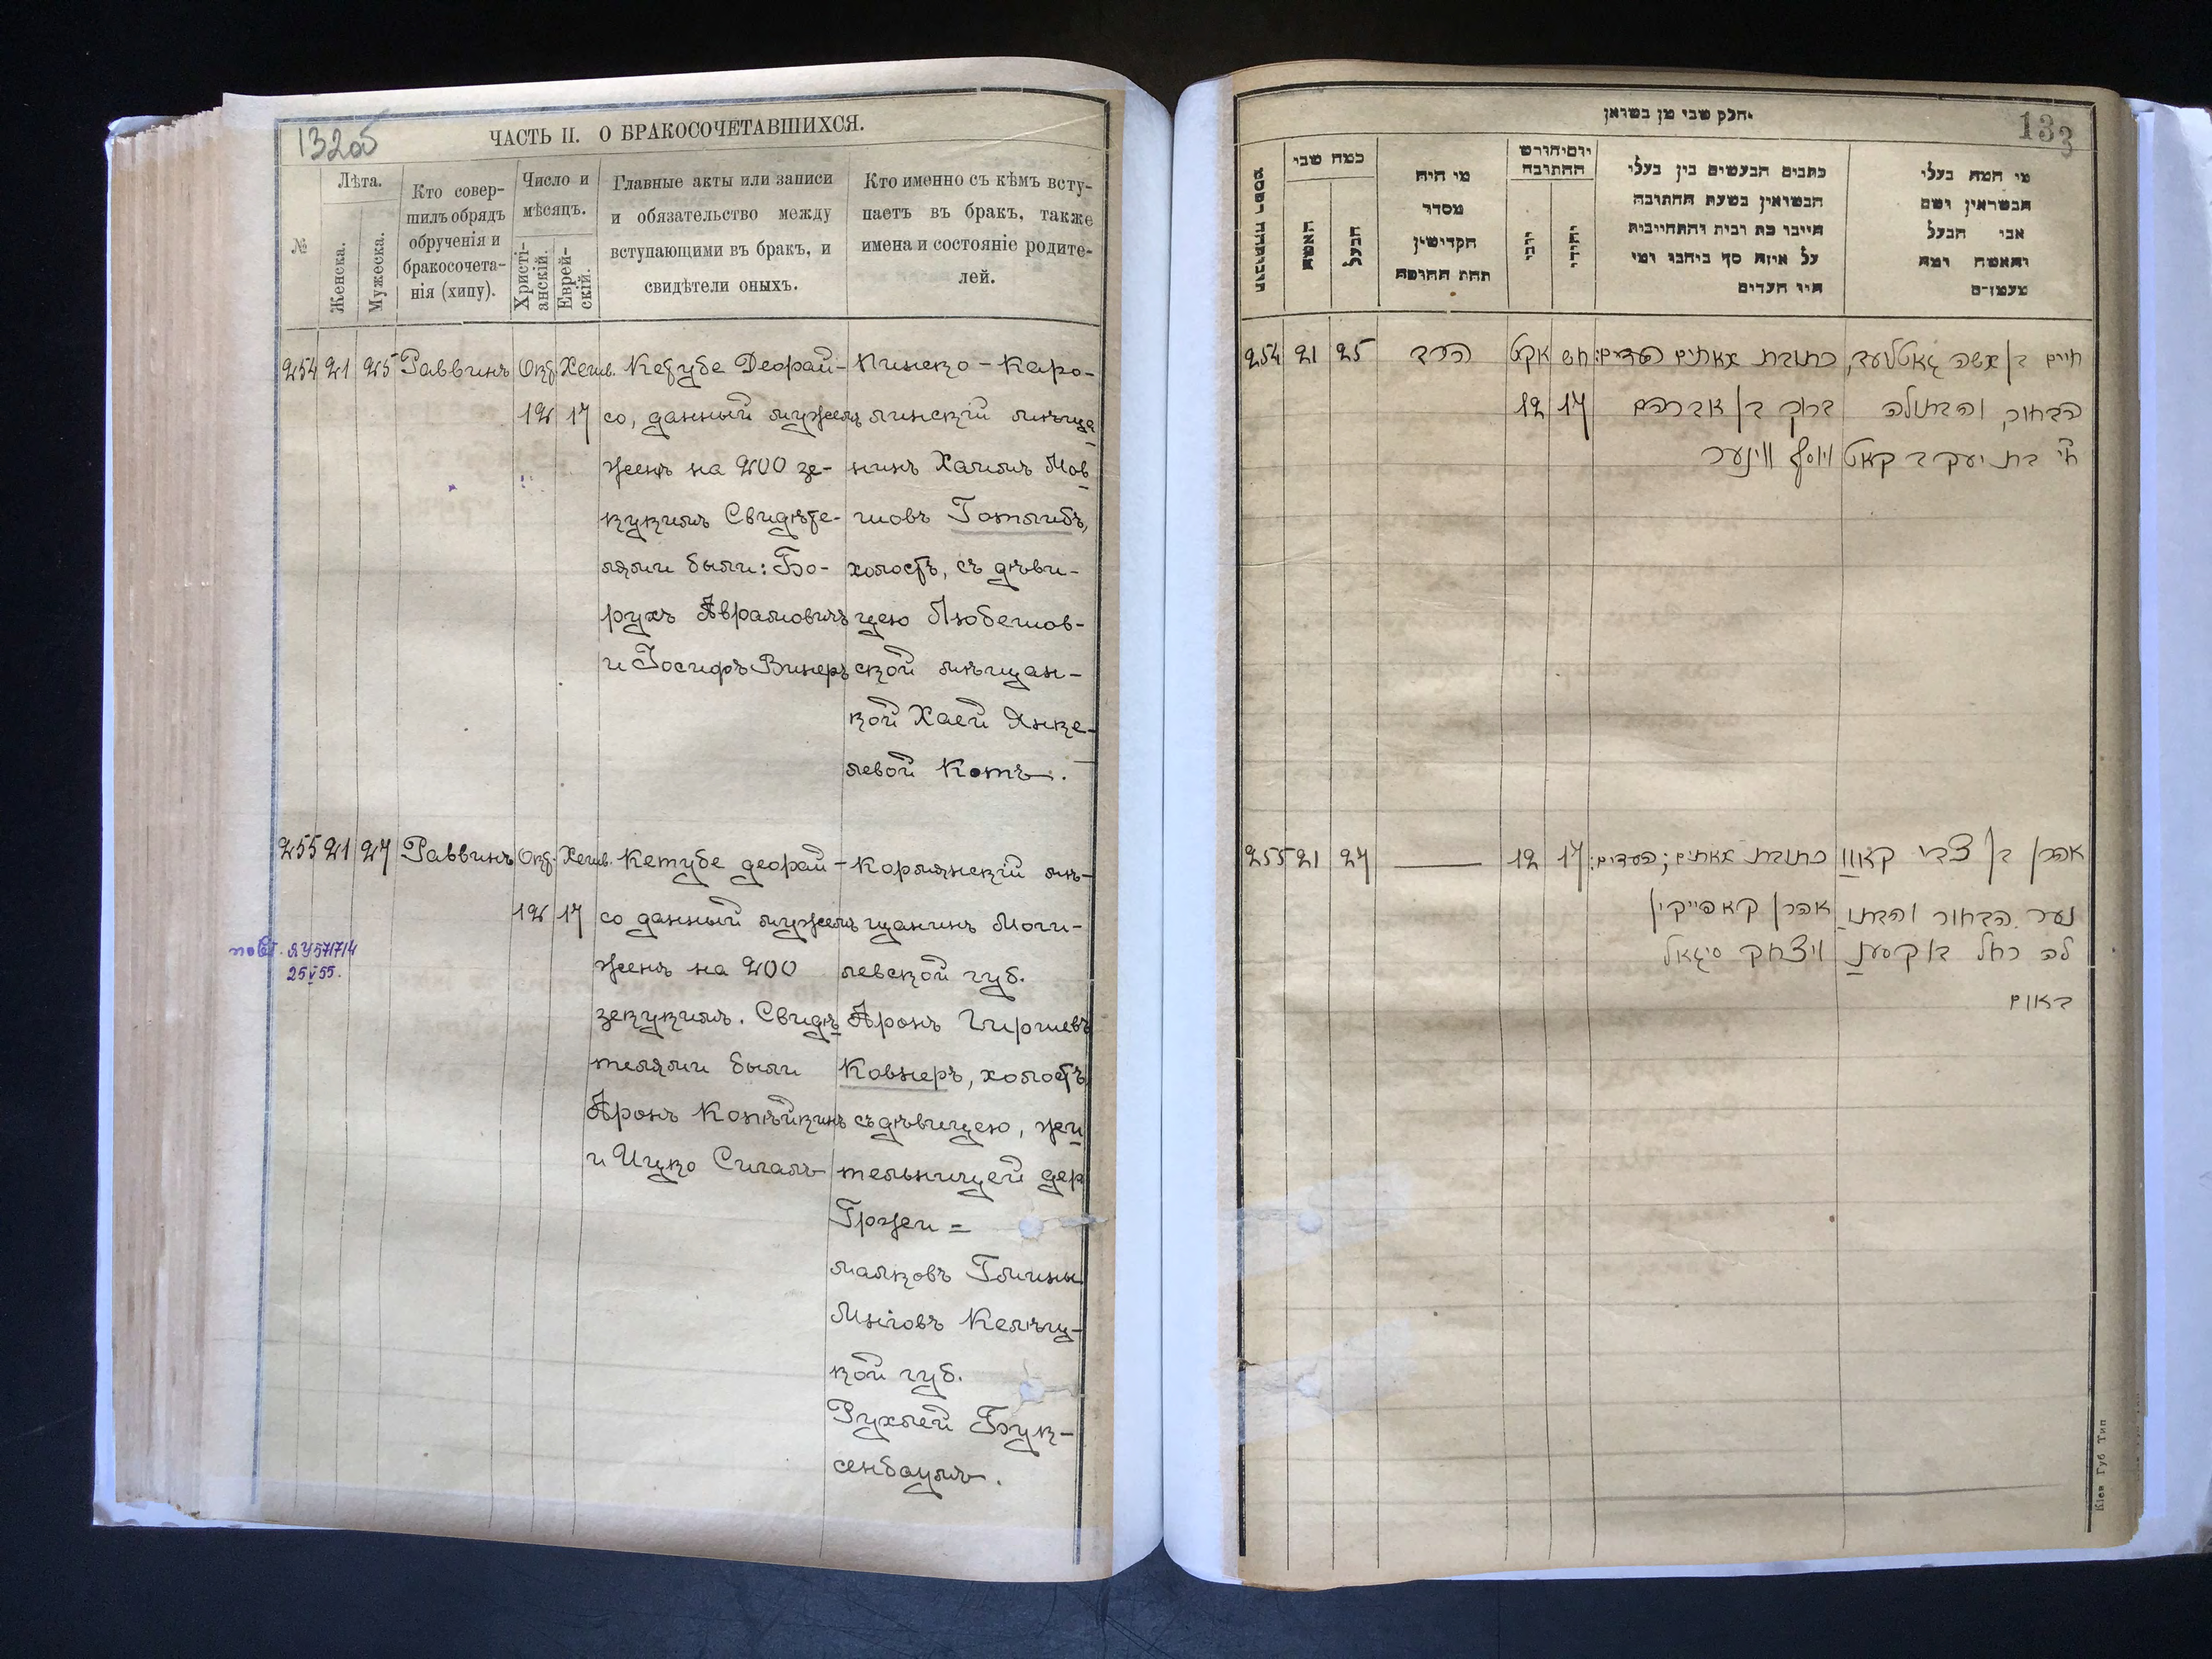 132об
ЧАСТЬ II. О БРАКОСОЧЕТАВШИХСЯ.
№
Лѣта.
Женска.
Мужеска.
Кто совер-
шилъ обрядъ
обрученія и
бракосочета-
нія (хипу).
Число и
мѣсяцъ.
Христі-
анскій.
Еврей-
скій.
Главные акты или записи
и обязательство между
вступающими въ бракъ, и
свидѣтели оныхъ.
Кто именно съ кѣмъ всту-
паетъ въ бракъ, также
имена и состояніе родите-
лей.
254 21 25 Раввинъ Окт. Хешв.
12 17
Кетубе Деорай-
со, данный мужемъ
женѣ на 200 зе-
кукимъ Свидѣте-
лями были: Бо-
рухъ Аврамовичъ
и Іосифъ Винеръ
Пинско-Каро-
линскій мѣща-
нинъ Хаимъ Мов
шовъ Готлибъ,
холостъ, съ дѣви-
цею Любешов-
ской мѣщан-
кой Хаей Янке-
левой Котъ.
255 21 27 Раввинъ Окт. Хешв.
12 17
Кетубе деорай-
со данный мужемъ
женѣ на 200
зекукимъ. Свидѣ
телями были
Аронъ Копѣйкинъ
и Ицко Сигалъ
Кормянскій мѣ-
щанинъ Моги-
левской губ.
Аронъ Гиршевъ
Ковнеръ, холостъ
съ дѣвицею, жи
тельницей дер
Гржи=
малковъ Гмины
Мніовъ Келѣц-
кой губ.
Рухлей Бук-
сенбаумъ.
25 V 55.
133
חלק שני מן נשואין
כמה שני
הבעל
מי היה
מסדר
הקדישין
תחת החופה
יום וחודש
החתונה
כתבים הנעשים בין בעלי
הנשואין בשעת החתונה
על איזה סך ניתנו ומי
היו העדים
מי המה בעלי
הנשואין ושם
אבי הבעל
והאשה ומה
מעמדם
254 21 25 הרב אקט חש
12 17
כתובת מאתים העדים:
ברוך בן אברהם
ויוסף ווינער
חיים בן משה גאטליעב,
הבחור, והבתולה
חי׳ בת יעקב קאט
255 21 27 — 12 17
כתובת מאתים; העדים:
אהרן קאפייקין
ויצחק סיגאל
אהרן בן צבי קאוו
נער הבחור והבתו
לה רחל בוקסענ
באום
Кіев Губ Тип